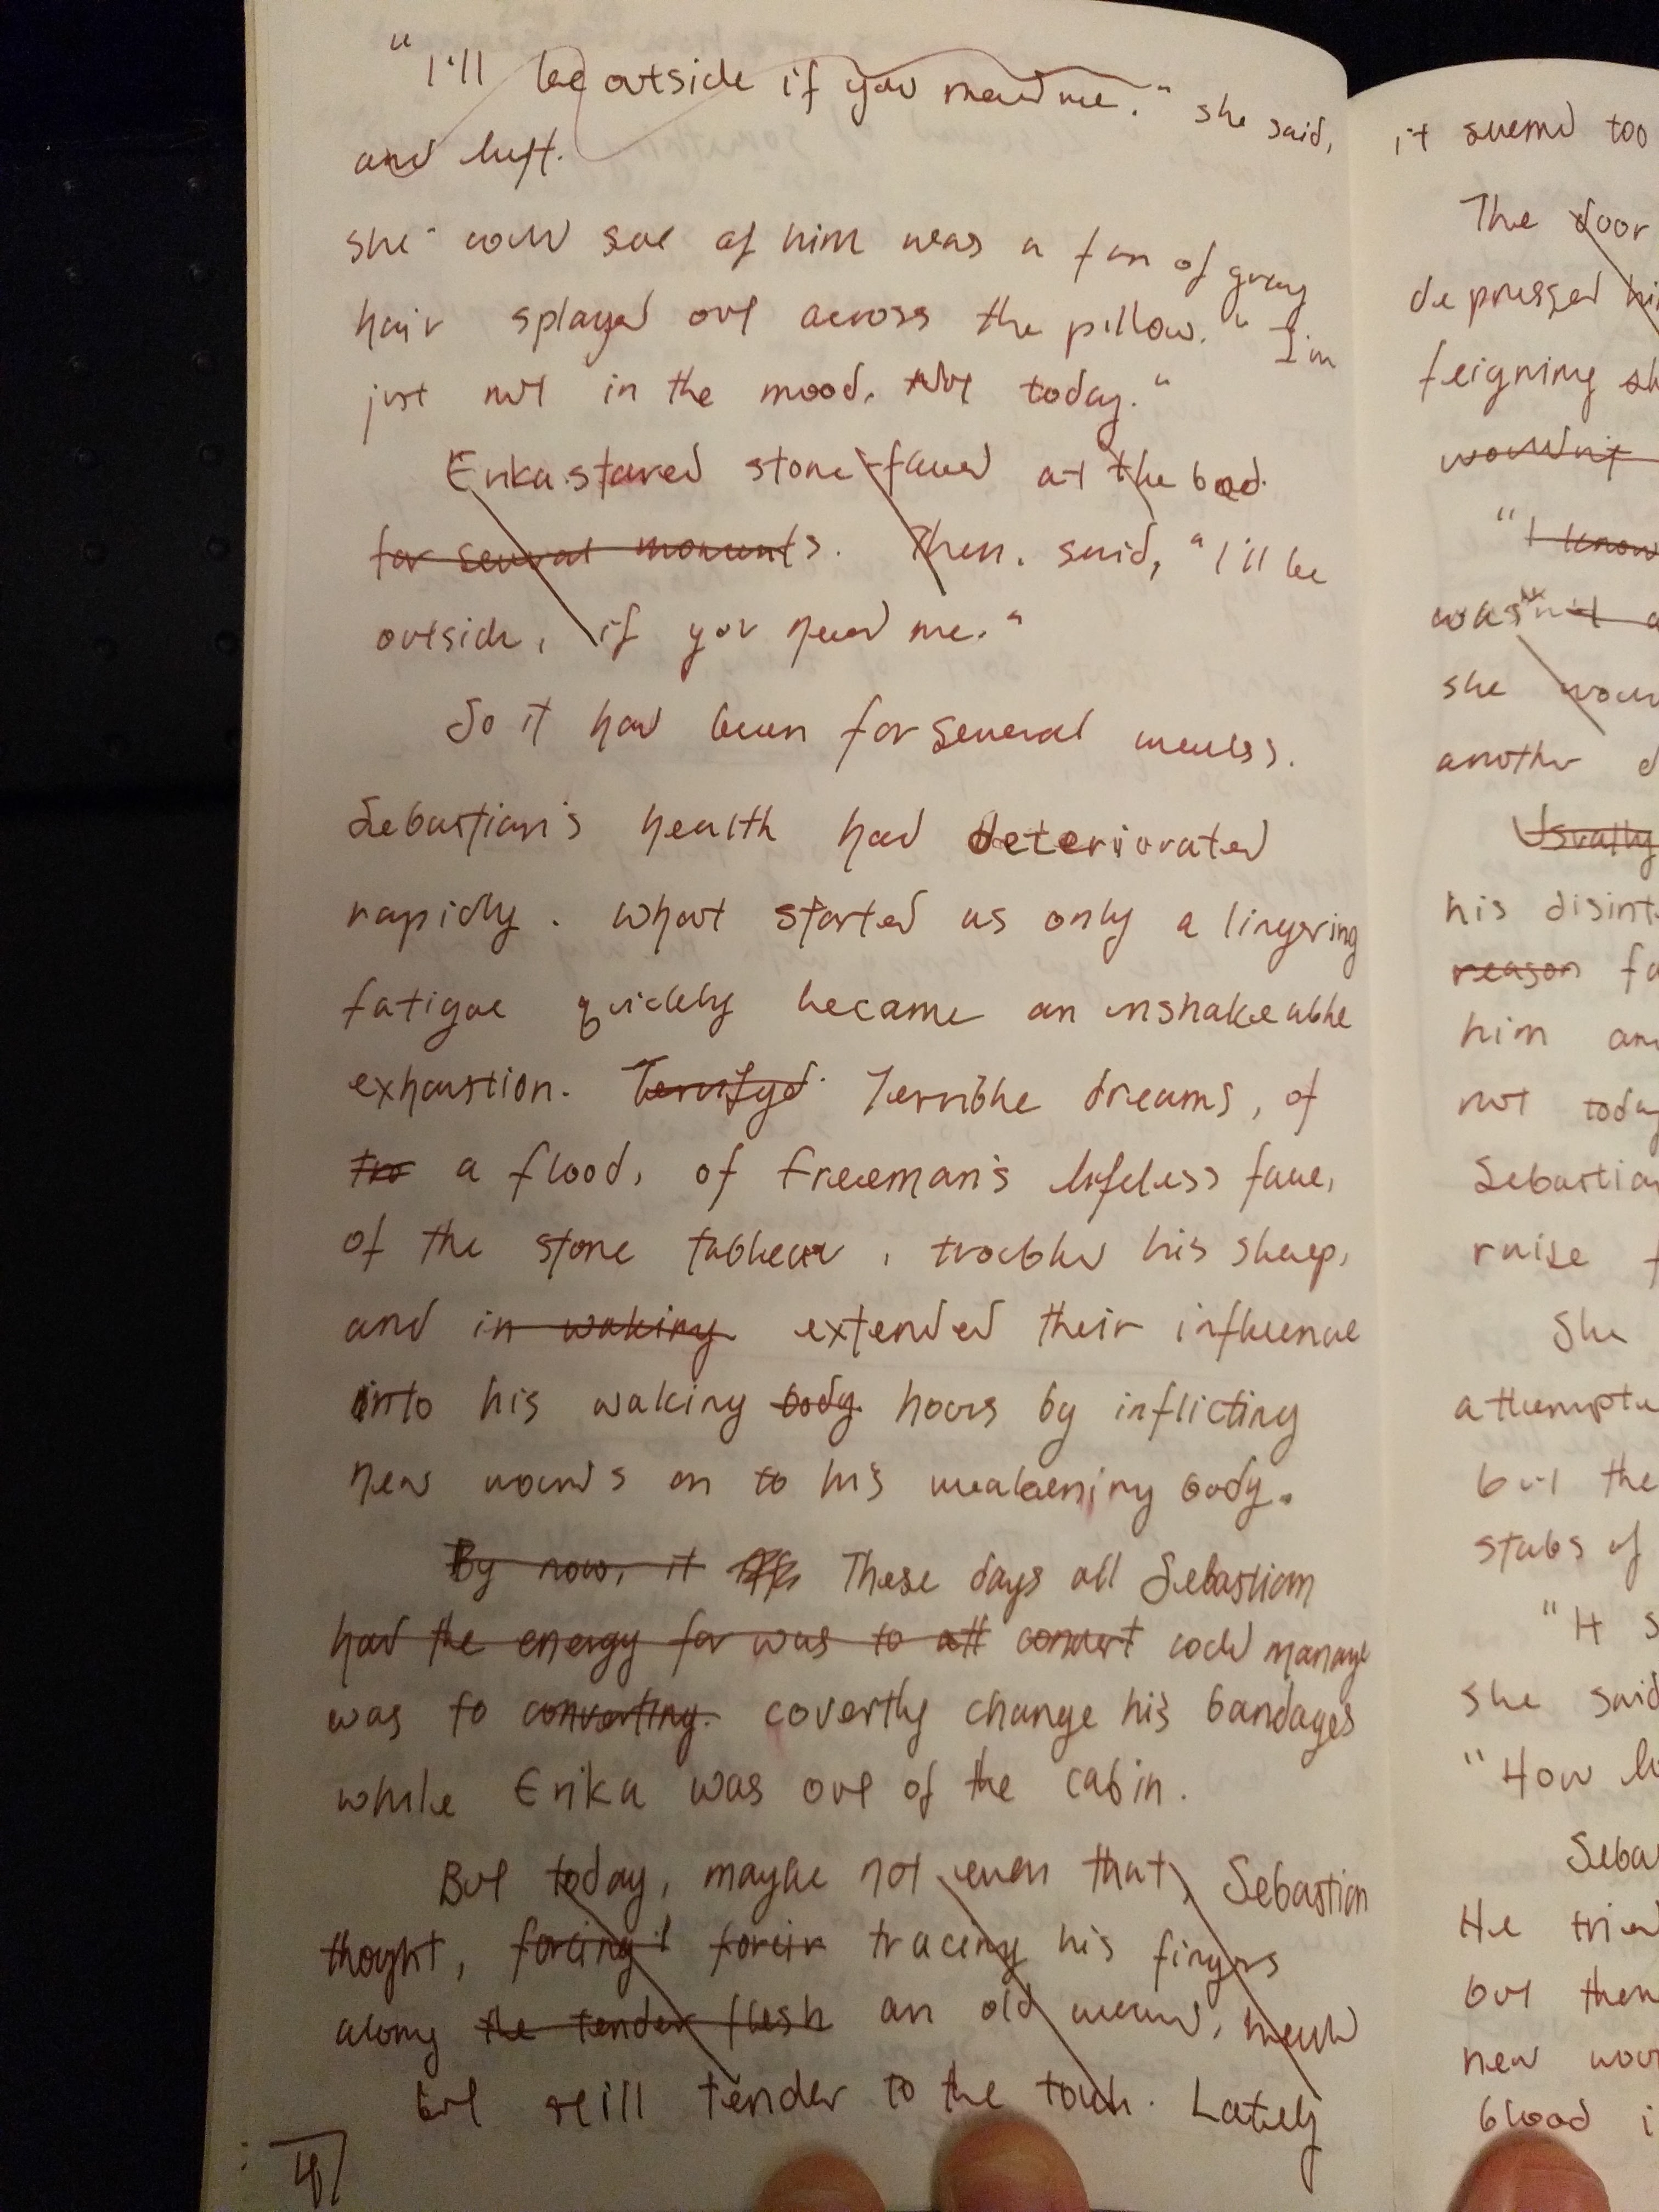 "I'll be outside if you need me." she said,
and left.
she could see of him was a fan of gray
hair splayed out across the pillow. "I'm
just not in the mood. Not today."
Erika stared stone-faced at the bed.
for several moments. Then, said, "I'll be
outside, if you need me."
So it had been for several weeks.
Sebastian's health had deteriorated
rapidly. What started as only a lingering
fatigue quickly became an unshakeable
exhaustion. Terrifyed. Terrible dreams, of
a flood, of Freeman's lifeless face,
of the stone tableau, troubled his sleep,
and in waking extended their influence
into his waking body hours by inflicting
new wounds on to his weakening body.
By now, it These days all Sebastian
had the energy for was to covert could manage
was to converting. covertly change his bandages
while Erika was out of the cabin.
But today, maybe not even that, Sebastian
thought, forcing tracing his fingers
along the tender flesh an old wound, healed
but still tender to the touch. Lately
it seemed too
The door
depressed
feigning
wouldn't
"I know
was
she
another
Usually
his
reason
him
not
Sebastian
raise
She
but the
stabs of
"It
she said
"How
He
but
new
blood